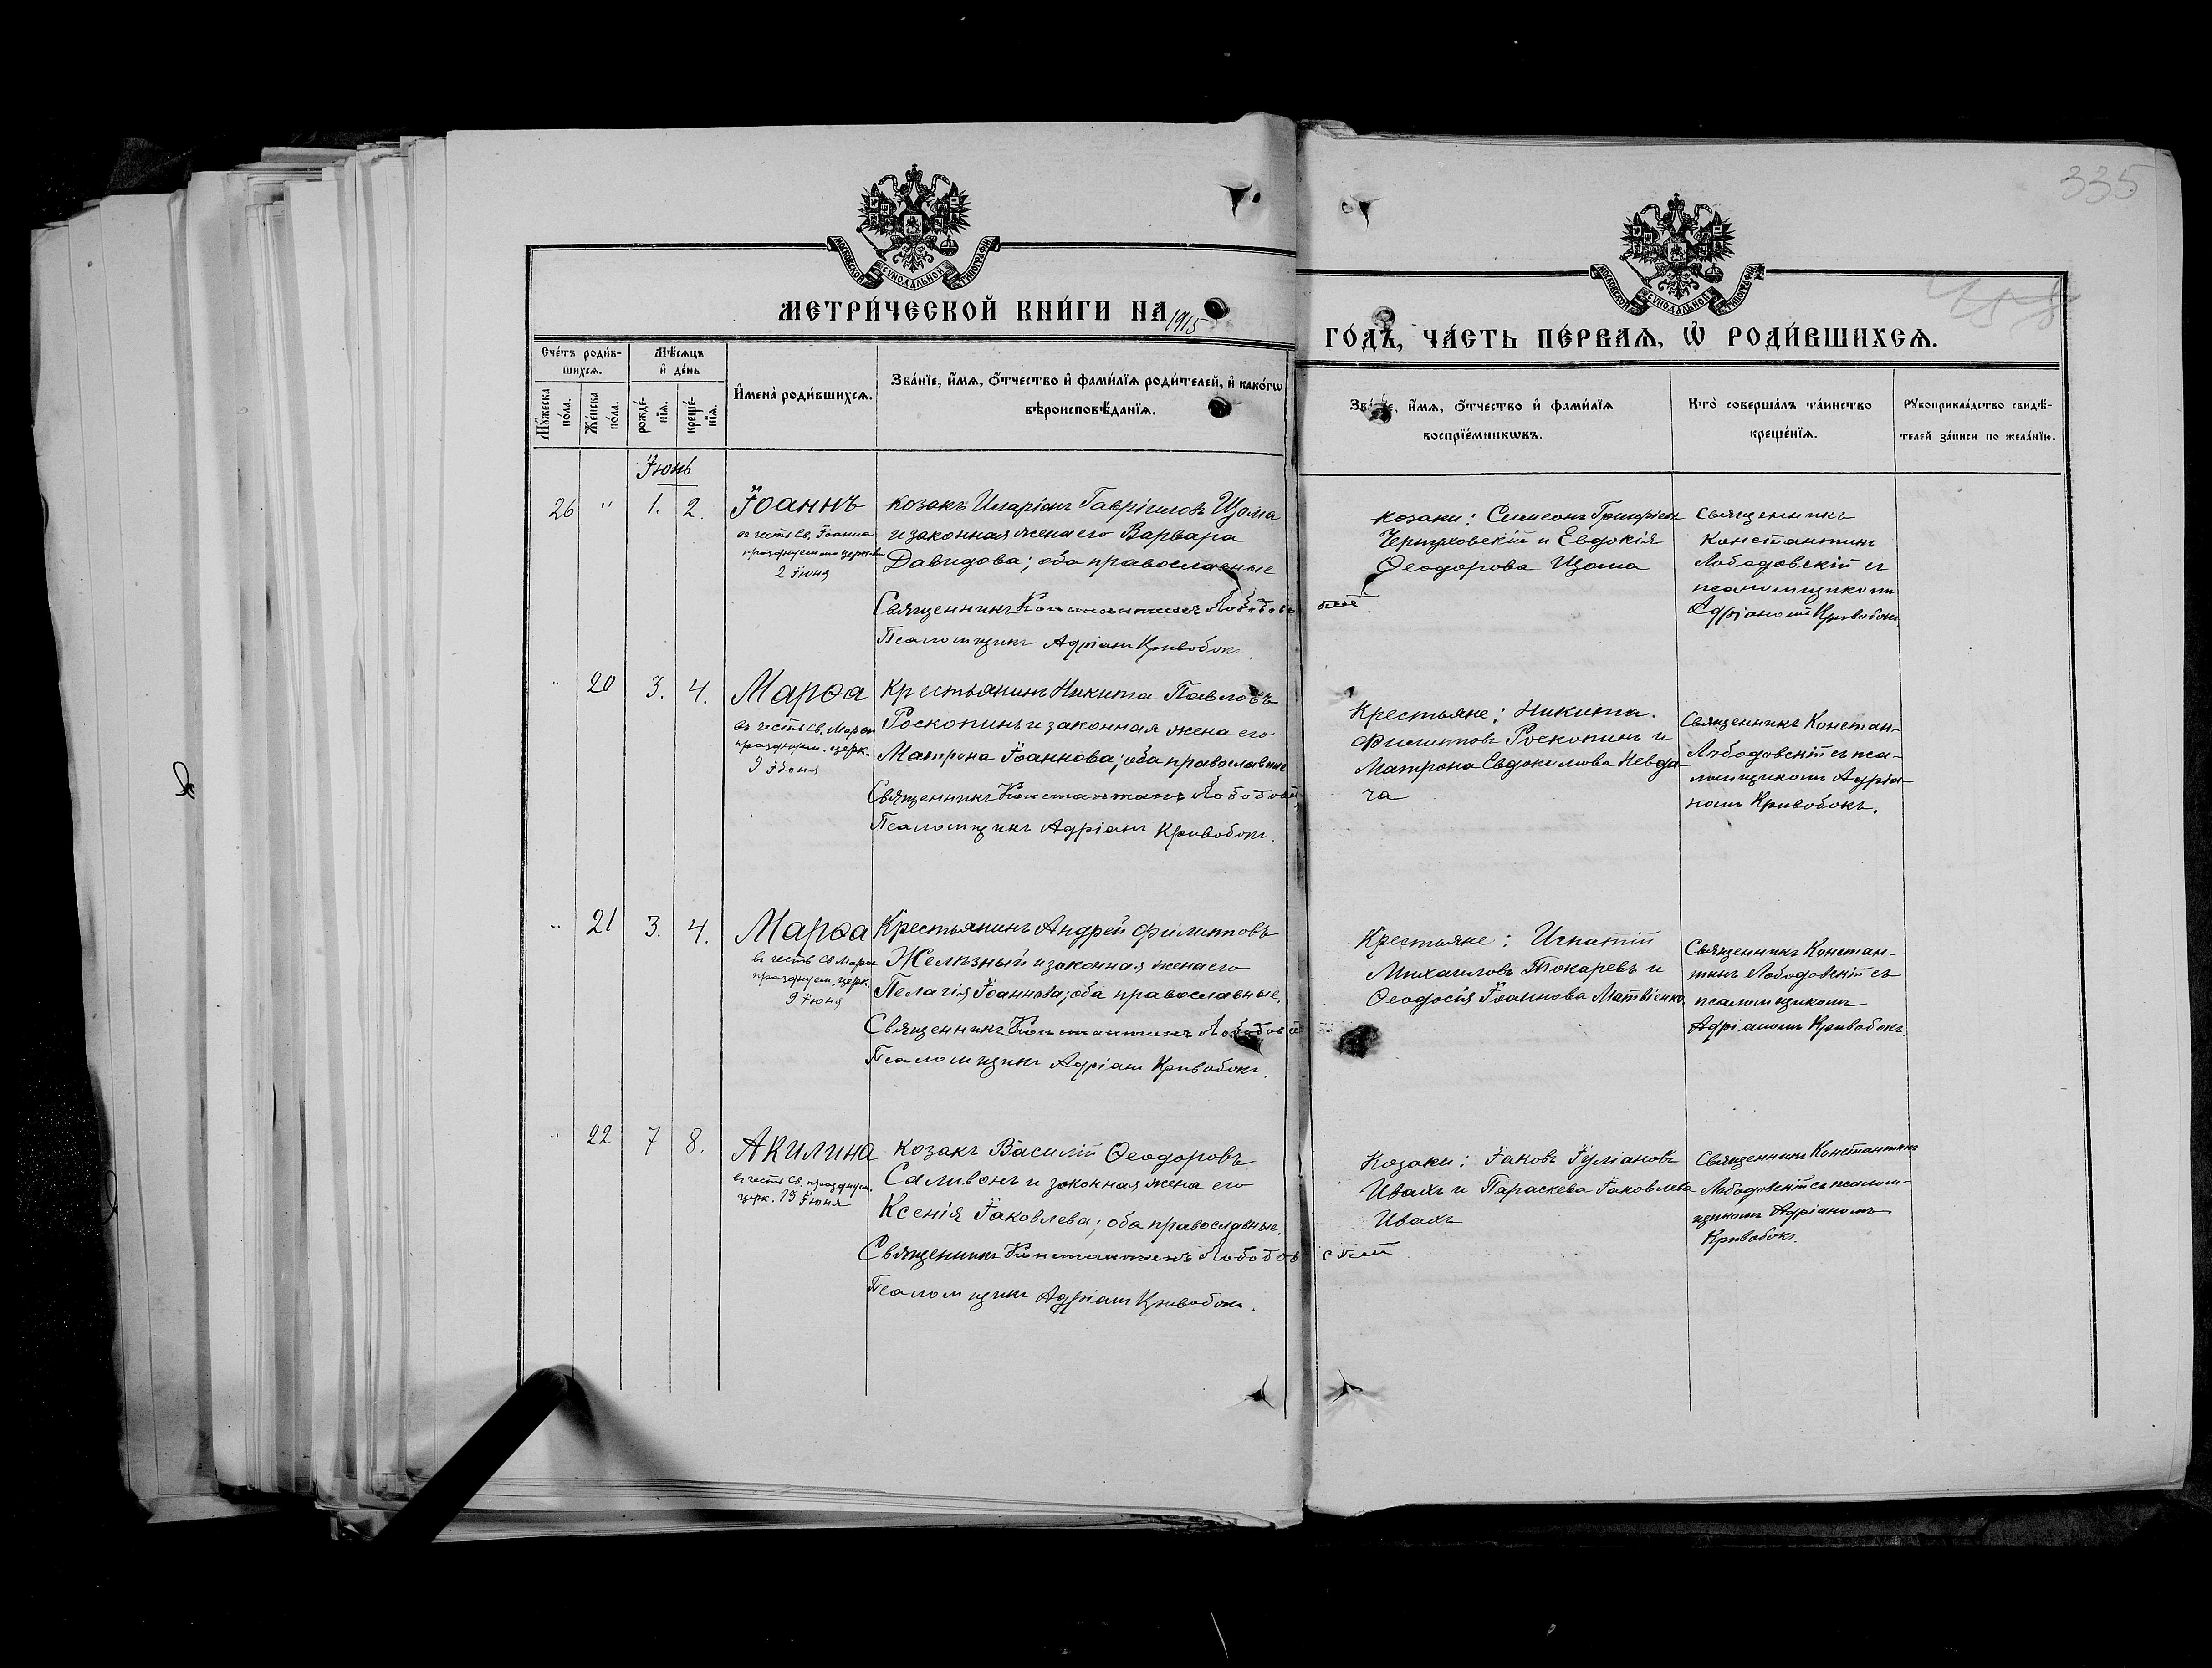 335
МОСКОВСКОЙ СѴНОДАЛЬНОЙ ТИПОГРАФІИ
МОСКОВСКОЙ СѴНОДАЛЬНОЙ ТИПОГРАФІИ
МЕТРИ́ЧЕСКОЙ КНИ́ГИ НА 1915
ГО́ДЪ, ЧА́СТЬ ПЕ́РВАѦ, Ѡ҆ РОДИ́ВШИХСѦ.
Сче́тъ роди́в-
шихсѧ.
Мѣ́сѧцъ
и҆ де́нь
Мꙋ́жеска
по́ла.
Же́нска
по́ла.
рожде́-
нїѧ.
креще́-
нїѧ.
И҆мена̀ роди́вшихсѧ.
Зва́нїе, и҆́мѧ, ѻ҆́тчество и҆ фами́лїѧ роди́телей, и҆ како́гѡ
вѣроисповѣ́данїѧ.
Зва́нїе, и҆́мѧ, ѻ҆́тчество и҆ фами́лїѧ
воспрїе́мникѡвъ.
Кто̀ соверша́лъ та́инство
креще́нїѧ.
Рꙋкоприкла́дство свидѣ́-
телей за́писи по жела́нїю.
Іюнь
26 " 1. 2.
Іоаннъ
въ честь Св. Іоанна
празднуемаго церковью
2 Іюня
козакъ Иларіонъ Гавріиловъ Щома
и законная жена его Варвара
Давидова; оба православные
Священникъ Константинъ Лободовскій
Псаломщикъ Адріанъ Кривобокъ.
козаки: Симеонъ
Чернуховскій и Евдокія
Ѳеодорова Щома
Священникъ
Константинъ
Лободовскій съ
псаломщикомъ
Адріаномъ Кривобокъ.
" 20 3. 4.
Марѳа
въ честь Св. Марѳы
празднуем. церк.
9 Іюня
Крестьянинъ Никита Павловъ
Роскопинъ и законная жена его
Матрона Іоаннова; оба православные
Священникъ Константинъ Лободовскій
Псаломщикъ Адріанъ Кривобокъ.
Крестьяне: Никита
Филипповъ Роскопинъ и
Матрона Евдокимова Невда-
ча
Священникъ Констан-
Лободовскій съ пса-
ломщикомъ Адріа-
номъ Кривобокъ.
" 21 3. 4.
Марѳа
въ честь Св Марѳы
празднуем. церк.
9 Іюня
Крестьянинъ Андрей Филипповъ
Желѣзный и законная жена его
Пелагія Іоаннова; оба православные.
Священникъ Константинъ Лободовскій
Псаломщикъ Адріанъ Кривобокъ.
Крестьяне: Игнатій
Михаиловъ Токаревъ и
Ѳеодосія Іоаннова Матвіенко.
Священникъ Констан-
тинъ Лободовскій съ
псаломщикомъ
Адріаномъ Кривобокъ.
" 22 7 8.
Акилина
въ честь Св. празднуем.
церк. 13 Іюня
козакъ Василій Ѳеодоровъ
Саливонъ и законная жена его
Ксенія Іаковлева; оба православные.
Священникъ Константинъ Лободовскій
Псаломщикъ Адріанъ Кривобокъ.
Козаки: Іаковъ Іуліановъ
Ивахъ и Параскева Іаковлева
Ивахъ
Священникъ Константинъ
Лободовскій съ псалом-
щикомъ Адріаномъ
Кривобокъ.